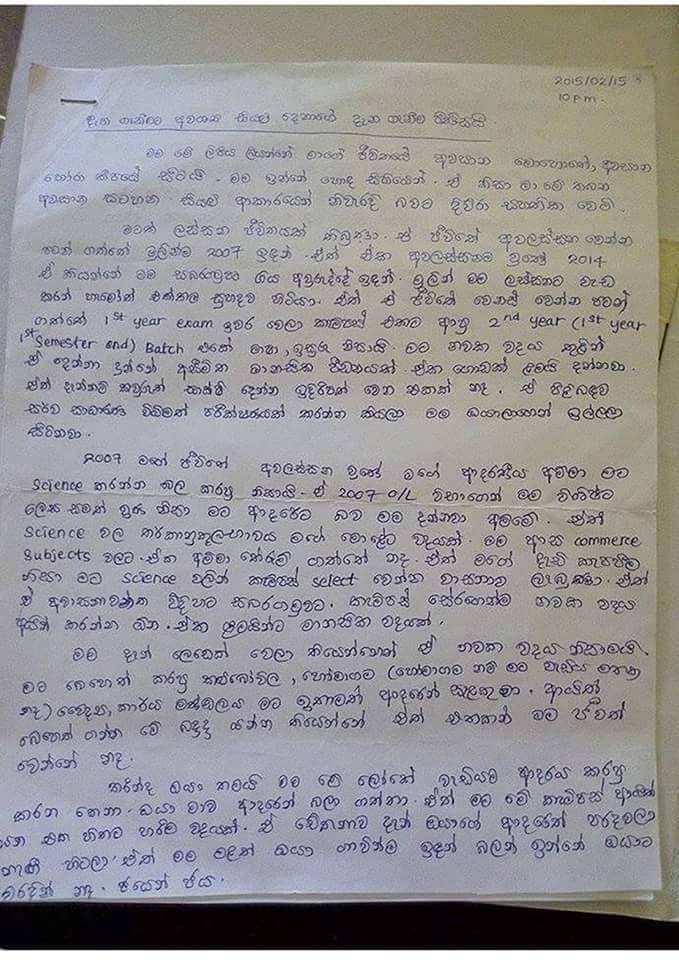 2015/02/15
10 p.m.
දැන ගැනීමට අවශ්‍ය සියළු දෙනාගේ දැන ගැනීම පිණිසයි.
මම මේ ලිපිය ලියන්නේ මාගේ ජීවිතයේ අවසාන මොහොතේ, අවසාන
හෝරා කීපයේ සිටයි. මම ඉන්නේ හොඳ සිහියෙන්. ඒ නිසා මා මේ තබන
අවසාන සටහන සියළු ආකාරයෙන් නිවැරදි බවට දිවුරා සහතික වෙමි.
මටත් ලස්සන ජීවිතයක් තිබුණා. ඒ ජීවිතේ අවලස්සන වෙන්න
පටන් ගත්තේ මුලින්ම 2007 ඉඳන්. ඒත් ඒක අවලස්සනම වුනේ 2014
ඒ කියන්නේ මම සබරගමුව ගිය අවුරුද්දේ ඉඳන්. මුලින් මම ලස්සනට වැඩ
කරන් හාමෝත් එක්කල සුහදව හිටියා. ඒත් ඒ ජීවිතේ වෙනස් වෙන්න පටන්
ගත්තේ 1st year exam ඉවර වෙලා කැම්පස් එකට ආපු 2nd year (1st year
1st Semester end) Batch එකේ මාෂා, ඉසුරු නිසායි. මට නවක වදය තුලින්
ඒ දෙන්නා දුන්නේ අසීමිත මානසික පීඩනයක් ඒක හොඩක් ළමයි දන්නවා.
ඒත් දැන්නම් කවුරුත් සාක්ෂි දෙන්න ඉදිරිපත් වෙන එකක් නෑ. ඒ පිළිබඳව
සර්ව සාධාරණ විධිමත් පරීක්ෂණයක් කරන්න කියලා මම ඔයාලාගෙන් ඉල්ලා
සිටිනවා.
2007 මගේ ජීවිතේ අවලස්සන වුනේ මගේ ආදරණීය අම්මා මට
Science කරන්න බල කරපු නිසායි. ඒ 2007 O/L විභාගෙන් මම විශිෂ්ට
ලෙස සමත් වුණ නිසා මට ආදරේට බව මම දන්නවා අම්මේ. ඒත්
Science වල තර්කානුකූලභාවය මගේ මොළේට වදයක්. මම ආස commerce
Subjects වලට. ඒක අම්මා තේරුම් ගත්තේ නෑ. ඒත් මගේ දැඩි කැපවීම
නිසා මට science වලින් කැම්පස් select වෙන්න වාසනාව ලැබුණා. ඒත්
ඒ අවාසනාවන්ත විදිහට සබරගමුවට. කැම්පස් සේරගෙන්ම නවක වදය
අයින් කරන්න ඕන. ඒක ළමයින්ට මානසික වදයක්.
මම දැන් ලෙඩෙක් වෙලා තියෙන්නෙත් ඒ නවක වදය නිසාමයි.
මට බෙහෙත් කරපු කඹේවිල, හෝමාගම (හෝමාගම නම් මට වැඩිය මතක
නෑ) වෛද්‍ය, කාර්ය මණ්ඩලය මට ඉතාමත් ආදරෙන් සැළකුවා. ආයිත්
බෙහෙත් ගන්න මේ බදාදා යන්න තියෙන්නේ ඒත් එතකන් මම ජීවත්
වෙන්නේ නෑ.
තරින්ද ඔයා තමයි මම මේ ලෝකේ වැඩියම ආදරය කරපු
කරන කෙනා. ඔයා මාව ආදරෙන් බලා ගත්තා. ඒත් මට මේ කැම්පස් ආයිත්
යන එක හිතට හරිම වදයක්. ඒ වේදනාව දැන් ඔයාගේ ආදරෙත් පරදවලා
නැඟී හිටලා. ඒත් මම මළත් ඔයා ගාවින්ම ඉඳන් බලන් ඉන්නේ ඔයාට
වරදින් නෑ. ජයෙන් ජය.